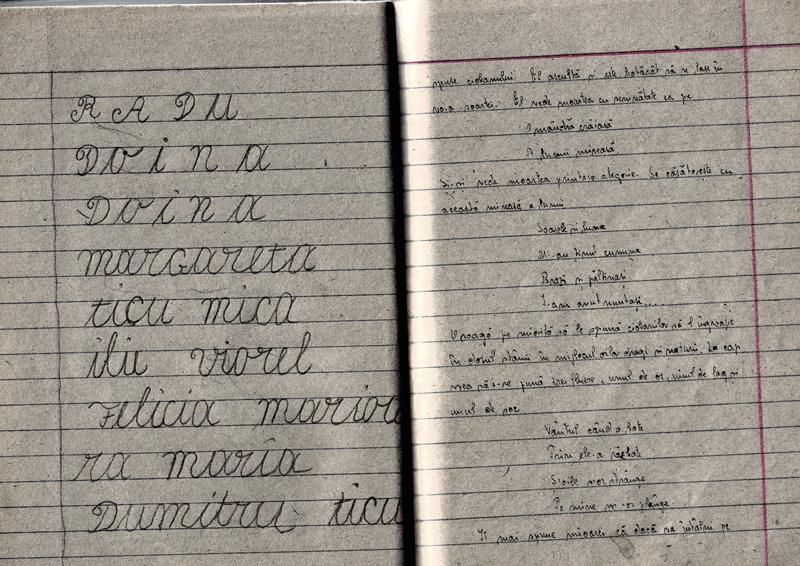 RADU
Doina
Doina
margareta
ticu mica
iliu viorel
Felicia marioa
ra maria
Dumitru ticu
spuse ciobanului. El ascultă și este hotărât să se lase în
voia soartei. El vede moartea cu seninătate ca pe
O mândră crăiasă
A lumii mireasă
Și-și vede moartea printr-o alegorie. Se căsătorește cu
această mireasă a lumii
Soarele și luna
Mi-au ținut cununa
Brazi și păltinași
I-am avut nuntași...
O roagă pe mioriță să le spună ciobanilor să-l îngroape
în dosul stânii în mijlocul oilor dragi și naturii. La cap
vrea să i-se pună trei fluiere, unul de os, unul de fag și
unul de soc
Vântul când o bate
Prin ele-a răzbate
S-oile s-or strânge
Pe mine m-or plânge.
Îi mai spune mioarei, că dacă va întâlni pe